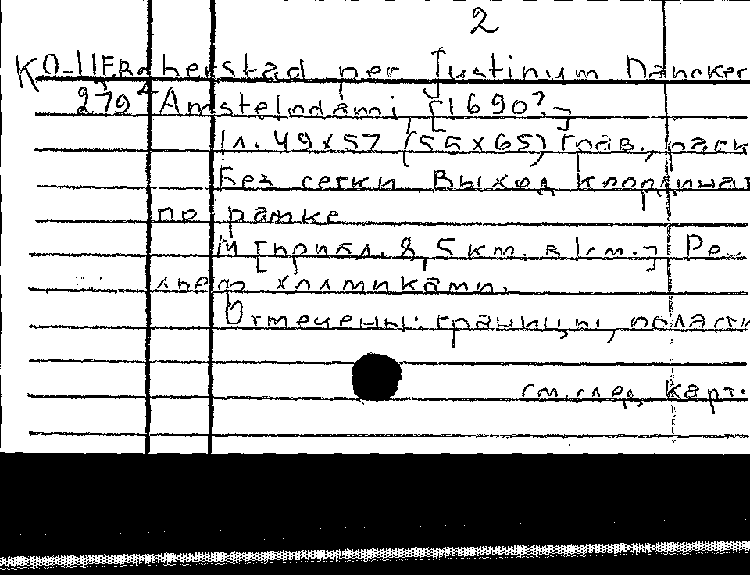 2
КО-11ЕR herstad per Justinum Dancker
279 Amstelodami, [1690?]
1л. 49х57 (55х65) Грав., раск
Без сетки Выход координат
по рамке
М [прибл. 8,5км. в 1см.] Ре
льеф холмиками.
Отмечены: границы, област
см.след. карт.